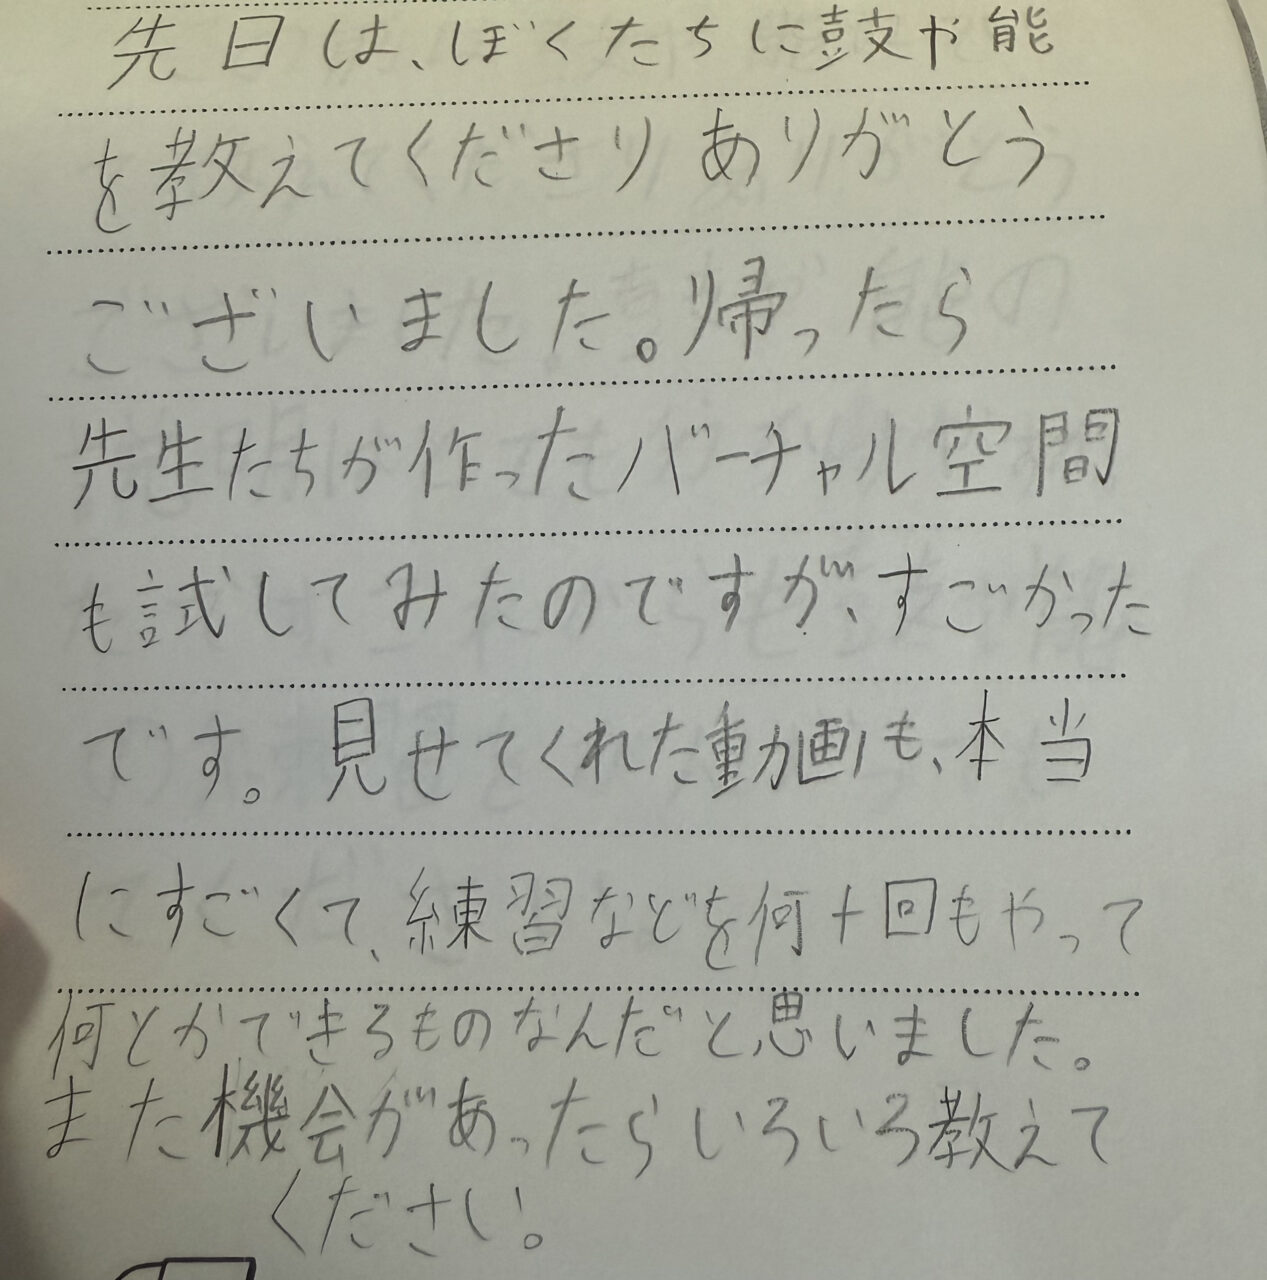 先日は、ぼくたちに鼓や能
を教えてくださりありがとう
ございました。帰ったら
先生たちが作ったバーチャル空間
も試してみたのですが、すごかった
です。見せてくれた動画も、本当
にすごくて、練習などを何十回もやって
何とかできるものなんだと思いました。
また機会があったらいろいろ教えて
ください。